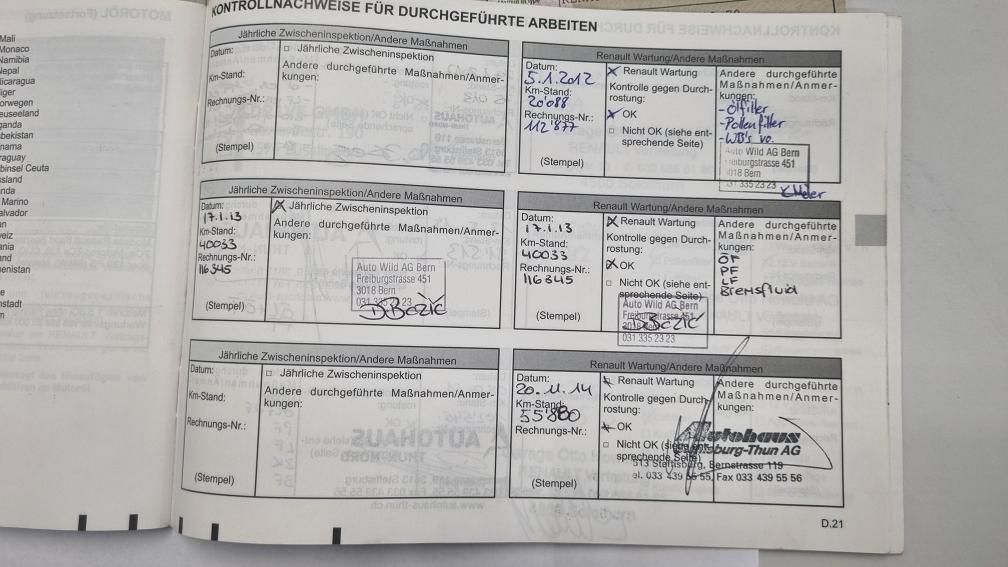 Mali
Monaco
Namibia
Nepal
Nicaragua
KONTROLLNACHWEISE FÜR DURCHGEFÜHRTE ARBEITEN
Jährliche Zwischeninspektion/Andere Maßnahmen
Datum:
Km-Stand:
Rechnungs-Nr.:
(Stempel)
□ Jährliche Zwischeninspektion
Andere durchgeführte Maßnahmen/Anmer-
kungen:
Renault Wartung/Andere Maßnahmen
Datum:
5.1.2012
Km-Stand:
20'088
Rechnungs-Nr.:
112'877
(Stempel)
Renault Wartung
Kontrolle gegen Durch-
rostung:
OK
□ Nicht OK (siehe ent-
sprechende Seite)
Andere durchgeführte
Maßnahmen/Anmer-
kungen:
- Ölfilter
- Pollenfilter
- WB's vo.
Auto Wild AG Bern
Freiburgstrasse 451
3018 Bern
031 335 23 23
Jährliche Zwischeninspektion/Andere Maßnahmen
Datum:
17.1.13
Km-Stand:
40033
Rechnungs-Nr.:
116345
(Stempel)
Jährliche Zwischeninspektion
Andere durchgeführte Maßnahmen/Anmer-
kungen:
Auto Wild AG Bern
Freiburgstrasse 451
3018 Bern
031 335 23 23
D Bozic
Renault Wartung/Andere Maßnahmen
Datum:
17.1.13
Km-Stand:
40033
Rechnungs-Nr.:
116345
(Stempel)
Renault Wartung
Kontrolle gegen Durch-
rostung:
OK
□ Nicht OK (siehe ent-
sprechende Seite)
Auto Wild AG Bern
Freiburgstrasse 451
3018 Bern
031 335 23 23
D Bozic
Andere durchgeführte
Maßnahmen/Anmer-
kungen:
ÖF
PF
LF
Bremsfluid
Jährliche Zwischeninspektion/Andere Maßnahmen
Datum:
Km-Stand:
Rechnungs-Nr.:
(Stempel)
□ Jährliche Zwischeninspektion
Andere durchgeführte Maßnahmen/Anmer-
kungen:
Renault Wartung/Andere Maßnahmen
Datum:
20.11.14
Km-Stand:
55'880
Rechnungs-Nr.:
(Stempel)
Renault Wartung
Kontrolle gegen Durch-
rostung:
OK
□ Nicht OK (siehe ent-
sprechende Seite)
Andere durchgeführte
Maßnahmen/Anmer-
kungen:
Autohaus
Steffisburg-Thun AG
Steffisburg, Bernstrasse 119
Tel. 033 439 56 55, Fax 033 439 55 56
D.21